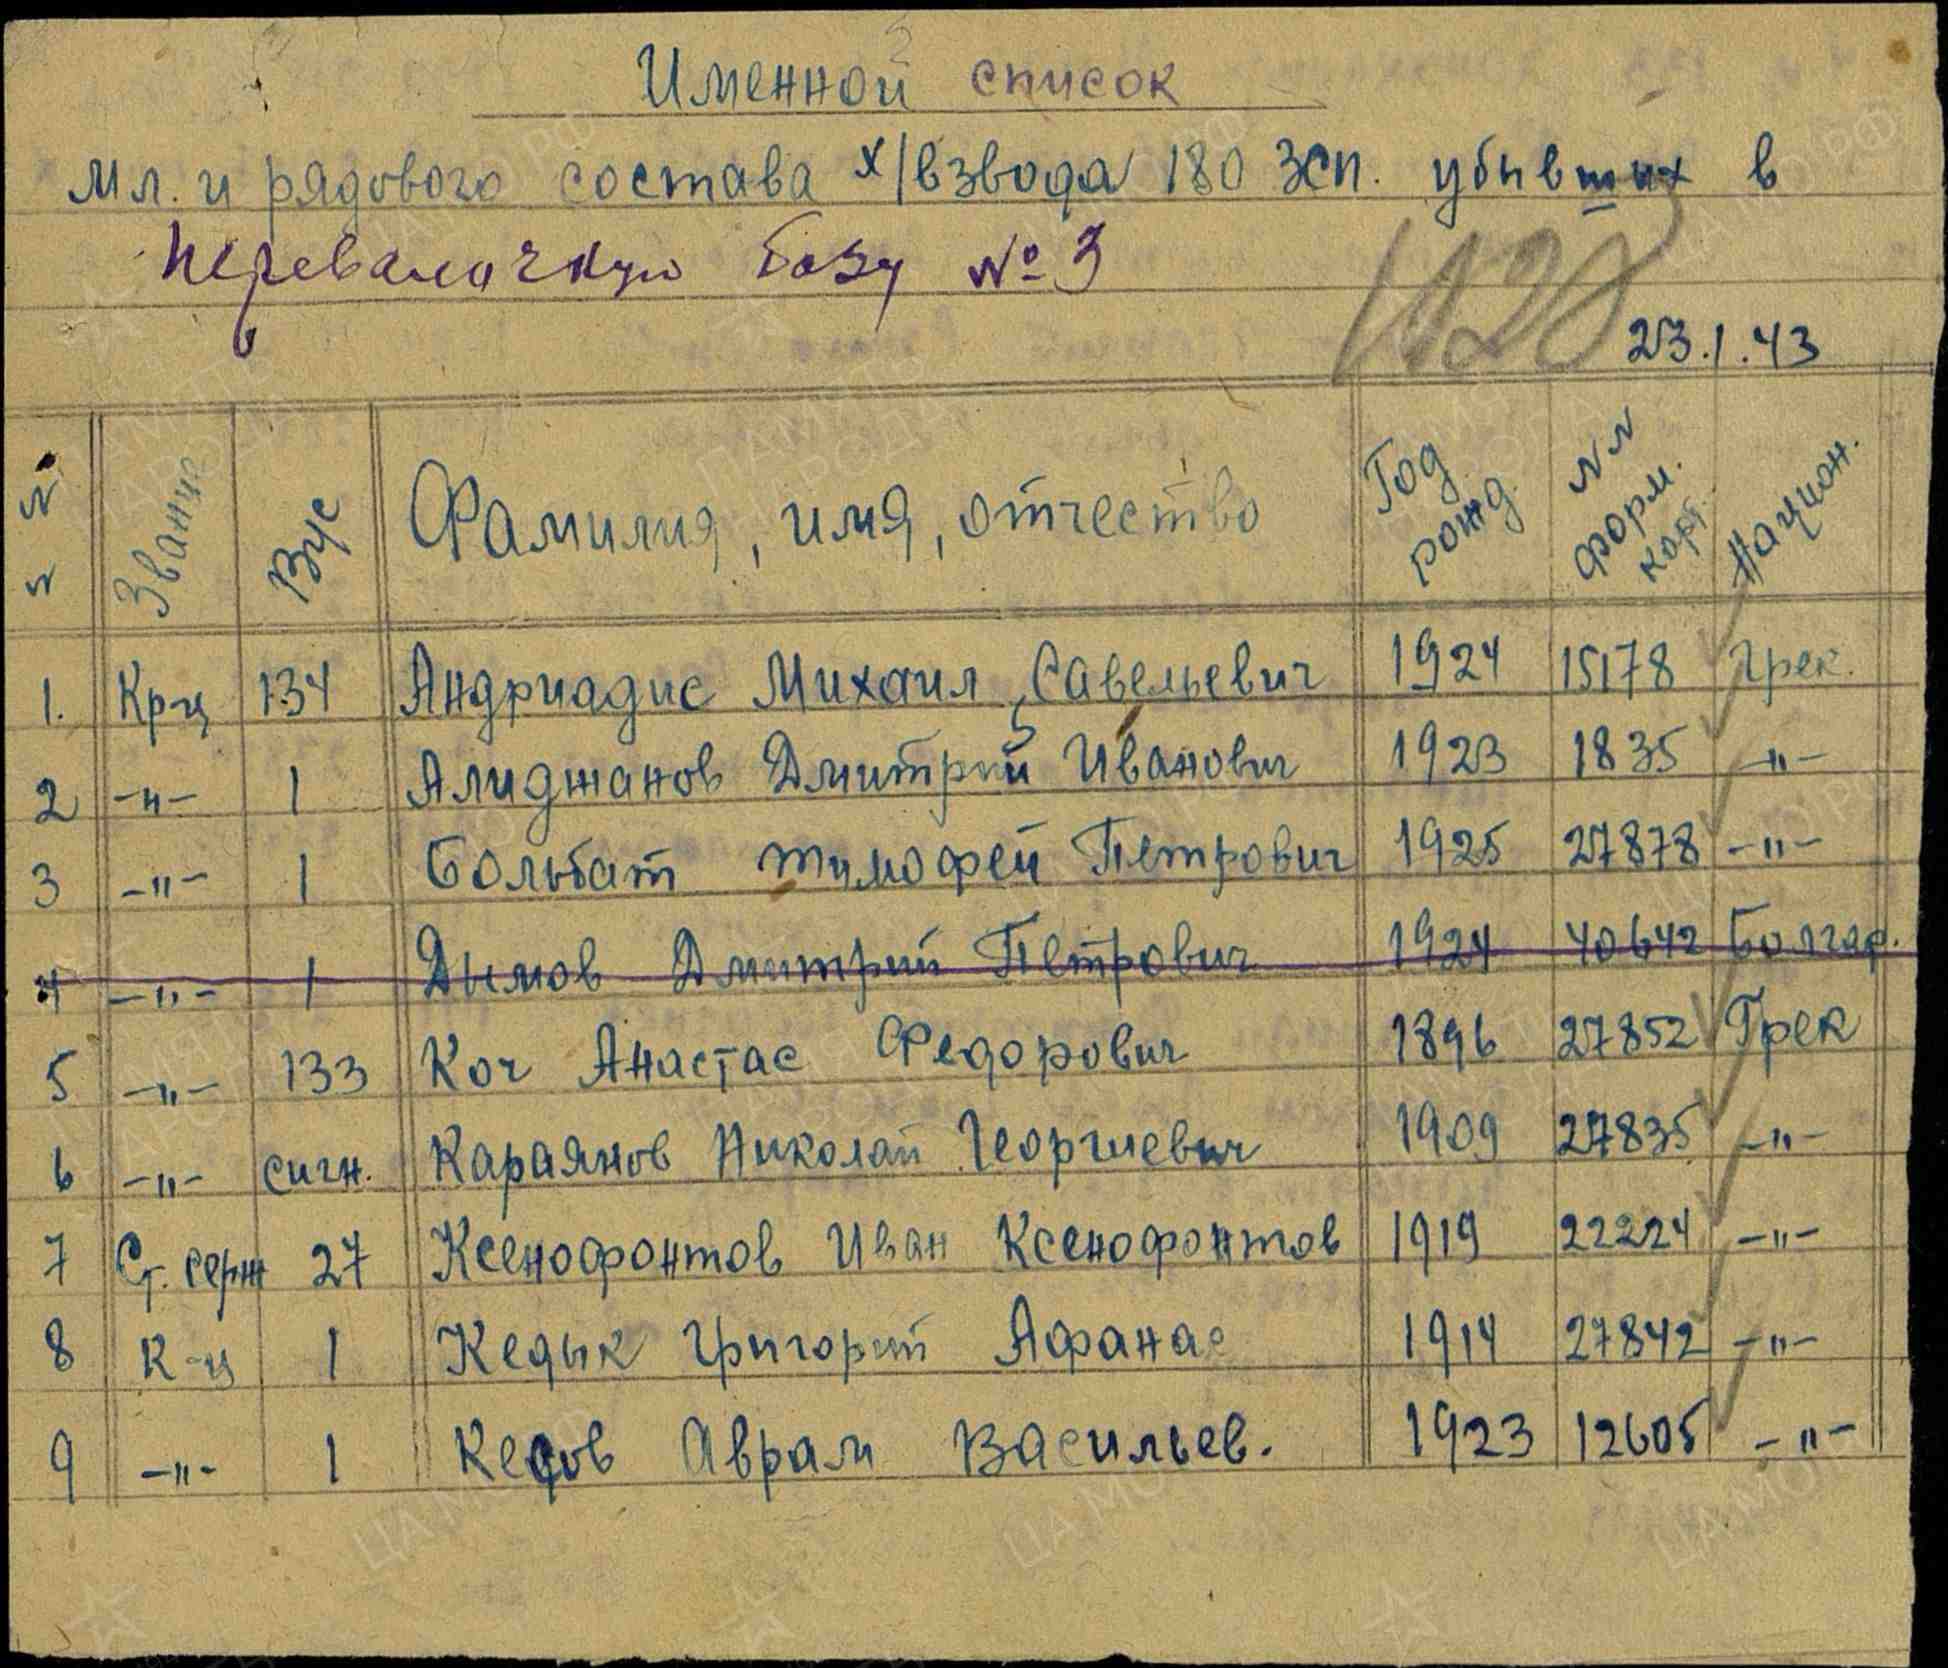 Именной список
мл. и рядового состава х/взвода 180 зсп. убывших в
Перевалочную базу № 3
1128
23.1.43
№ № Звание Вус Фамилия, имя, отчество Год рожд. №№ форм. карт. Национ.
1. Кр-ц 134 Андриадис Михаил Савельевич 1924 15178 Грек.
2 -"- 1 Алиджанов Дмитрий Иванович 1923 1835 -"-
3 -"- 1 Больбат Тимофей Петрович 1925 27878 -"-
4 -"- 1 Дымов Дмитрий Петрович 1924 40642 Болгар.
5 -"- 133 Коч Анастас Федорович 1896 27852 Грек
6 -"- сигн. Караянов Николай Георгиевич 1909 27835 -"-
7 Ст. серж 27 Ксенофонтов Иван Ксенофонтов 1919 22224 -"-
8 К-ц 1 Кедык Григорий Афанас 1914 27842 -"-
9 -"- 1 Кедов Аврам Васильев. 1923 12605 -"-